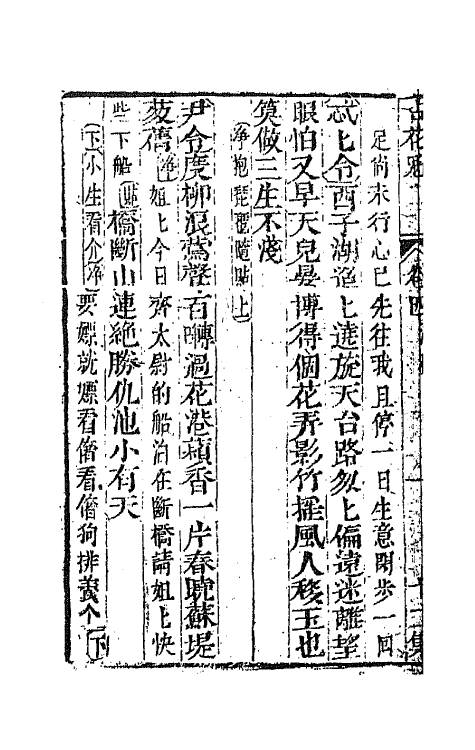 占花魁
足尚未行心已先往我且停一日生意閒步一囘
忒〻令西子湖邉〻遶旋天台路叔〻偏遠迷離望
眼怕又早天兒晏博得個花弄影竹搖風人移玉也
筭做三生不淺
淨抱琵琶隨貼上
尹令度柳浪鶯聲百囀過花港蘋香一片春曉蘇堤
菱舊淨姐〻今日齊太尉的船泊在斷橋請姐〻快
些下船貼橋斷山連絶勝仇池小有天
下小生看介淨要嫖就嫖看偺看偺狗排養个下